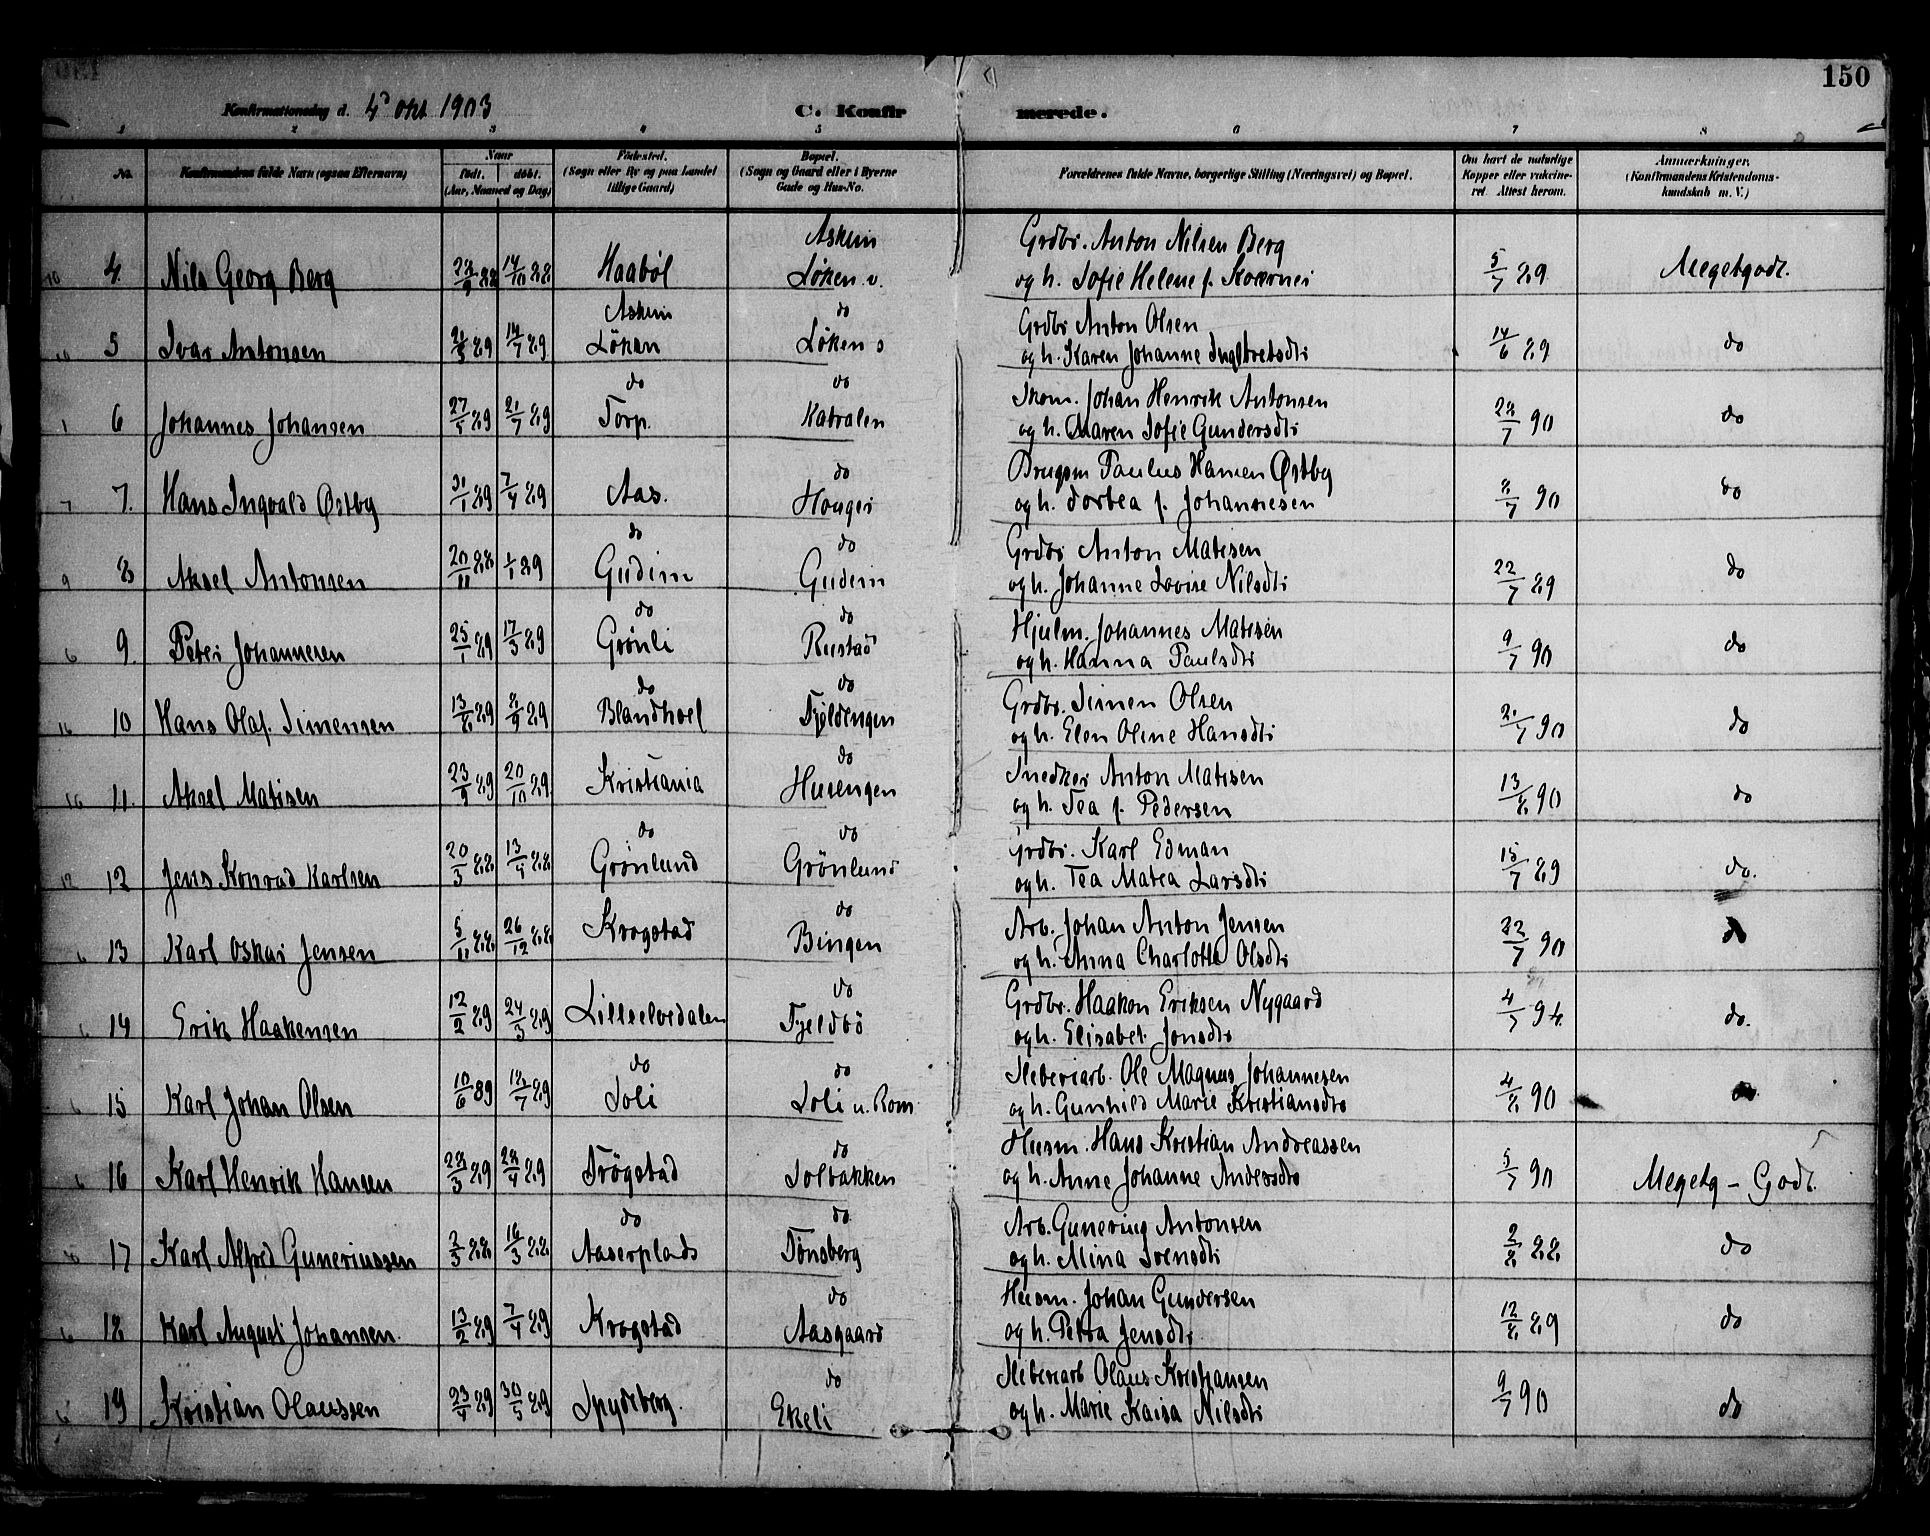 150
Konfirmationsdag d. 4de okt 1903 C. Konfirmerede.
1 2 3 4 5 6 7 8
No. Konfirmandens fulde Navn (ogsaa Efternavn) Naar født. døbt. (Aar, Maaned og Dag) Fødested. (Sogn eller By og paa Landet tillige Gaard) Bopæl. (Sogn og Gaard eller i Byerne Gade og Hus-No. Forældrenes fulde Navne, borgerlige Stilling (Næringsvei) og Bopæl. Om havt de naturlige Kopper eller vakcineret. Attest herom. Anmærkninger. (Konfirmandens Kristendomskundskab m. V.)
Askim Grdbr. Anton Nilsen Berg
4. Nils Georg Berg 28/9 88 14/10 88 Haabøl Løken v. og h. Sofie Helene f. Kværner 5/7 89 Megetgodt.
Askim do Grdbr Anton Olsen
5 Ivar Antonsen 14/7 89 Løken Løken s og h. Karen Johanne Ingebretsdtr 14/6 89 do
do do Skom. Johan Henrik Antonsen
6 Johannes Johansen 27/5 89 21/7 89 Torp. Katralen og h. Maren Sofie Gundersdtr 28/7 90 do
do Brugsm Paulus Hansen Østby
7. Hans Ingvald Østby 31/1 89 7/4 89 Aas. Houger og h. Dortea f. Johannesen 8/7 90 do
do do Grdbr Anton Matisen
8 Aksel Antonsen 20/11 88 1/1 89 Gudim Gudim og h. Johanne Lovise Nilsdtr 22/7 89 do
do do Hjulm. Johannes Matisen
9. Peter Johannesen 25/1 89 17/3 89 Grönli Rustad og h. Hanna Paulsdtr 9/7 90 do
do do Grdbr. Simen Olsen
10 Hans Olaf. Simensen 13/8 89 8/9 89 Blandhoel Fjeldengen og h. Elen Oline Hansdtr 2/7 90 do
do Snedker Anton Matisen
11. Aksel Matisen 23/9 89 20/10 89 Kristiania Huiengen og h. Tea f. Pedersen 13/8 90 do
do do Grdbr. Karl Edman
12 Jens Konrad Karlsen 20/3 88 13/4 88 Grönlund Grönlund og h. Tea Matea Larsdtr 15/7 89 do.
do Arb. Johan Anton Jensen
13 Karl Oskar Jensen 5/11 88 26/12 88 Krogstad Bingen og h. Anna Charlotte Olsdtr 22/7 90 do
do Grdbr. Haakon Eriksen Nygaard
14 Erik Haakensen 12/2 89 24/3 89 Lilleelvedalen Fjeldbö og h. Elisabet Jonsdtr 4/7 94. do.
do do Sliberiarb. Ole Magnus Johannesen
15 Karl Johan Olsen 10/6 89 18/7 89 Soli Soli u. Rom og h. Gunhild Marie Kristiansdtr 4/8 90 do
do Husm. Hans Kristian Andreassen
16 Karl Henrik Hansen 28/3 89 28/4 89 Trögstad Solbakken og h. Anne Johanne Andersdtr 5/7 90 Megetg - Godt.
do do Arb. Gunerius Antonsen
17 Karl Alfred Guneriussen 2/3 88 16/3 88 Aaserplads Tönsberg og h. Mina Svensdtr 2/8 88 do
do Husm. Johan Gundersen
18 Karl August Johansen. 13/2 89 7/4 89 Krogstad Aasgaard og h. Petra Jensdtr 12/8 89 do
do Sliberiarb Olaus Kristiansen
19 Kristian Olaussen 23/4 89 30/5 89 Spydeberg. Ekeli og h. Marie Kaisa Nilsdtr 9/7 90 do